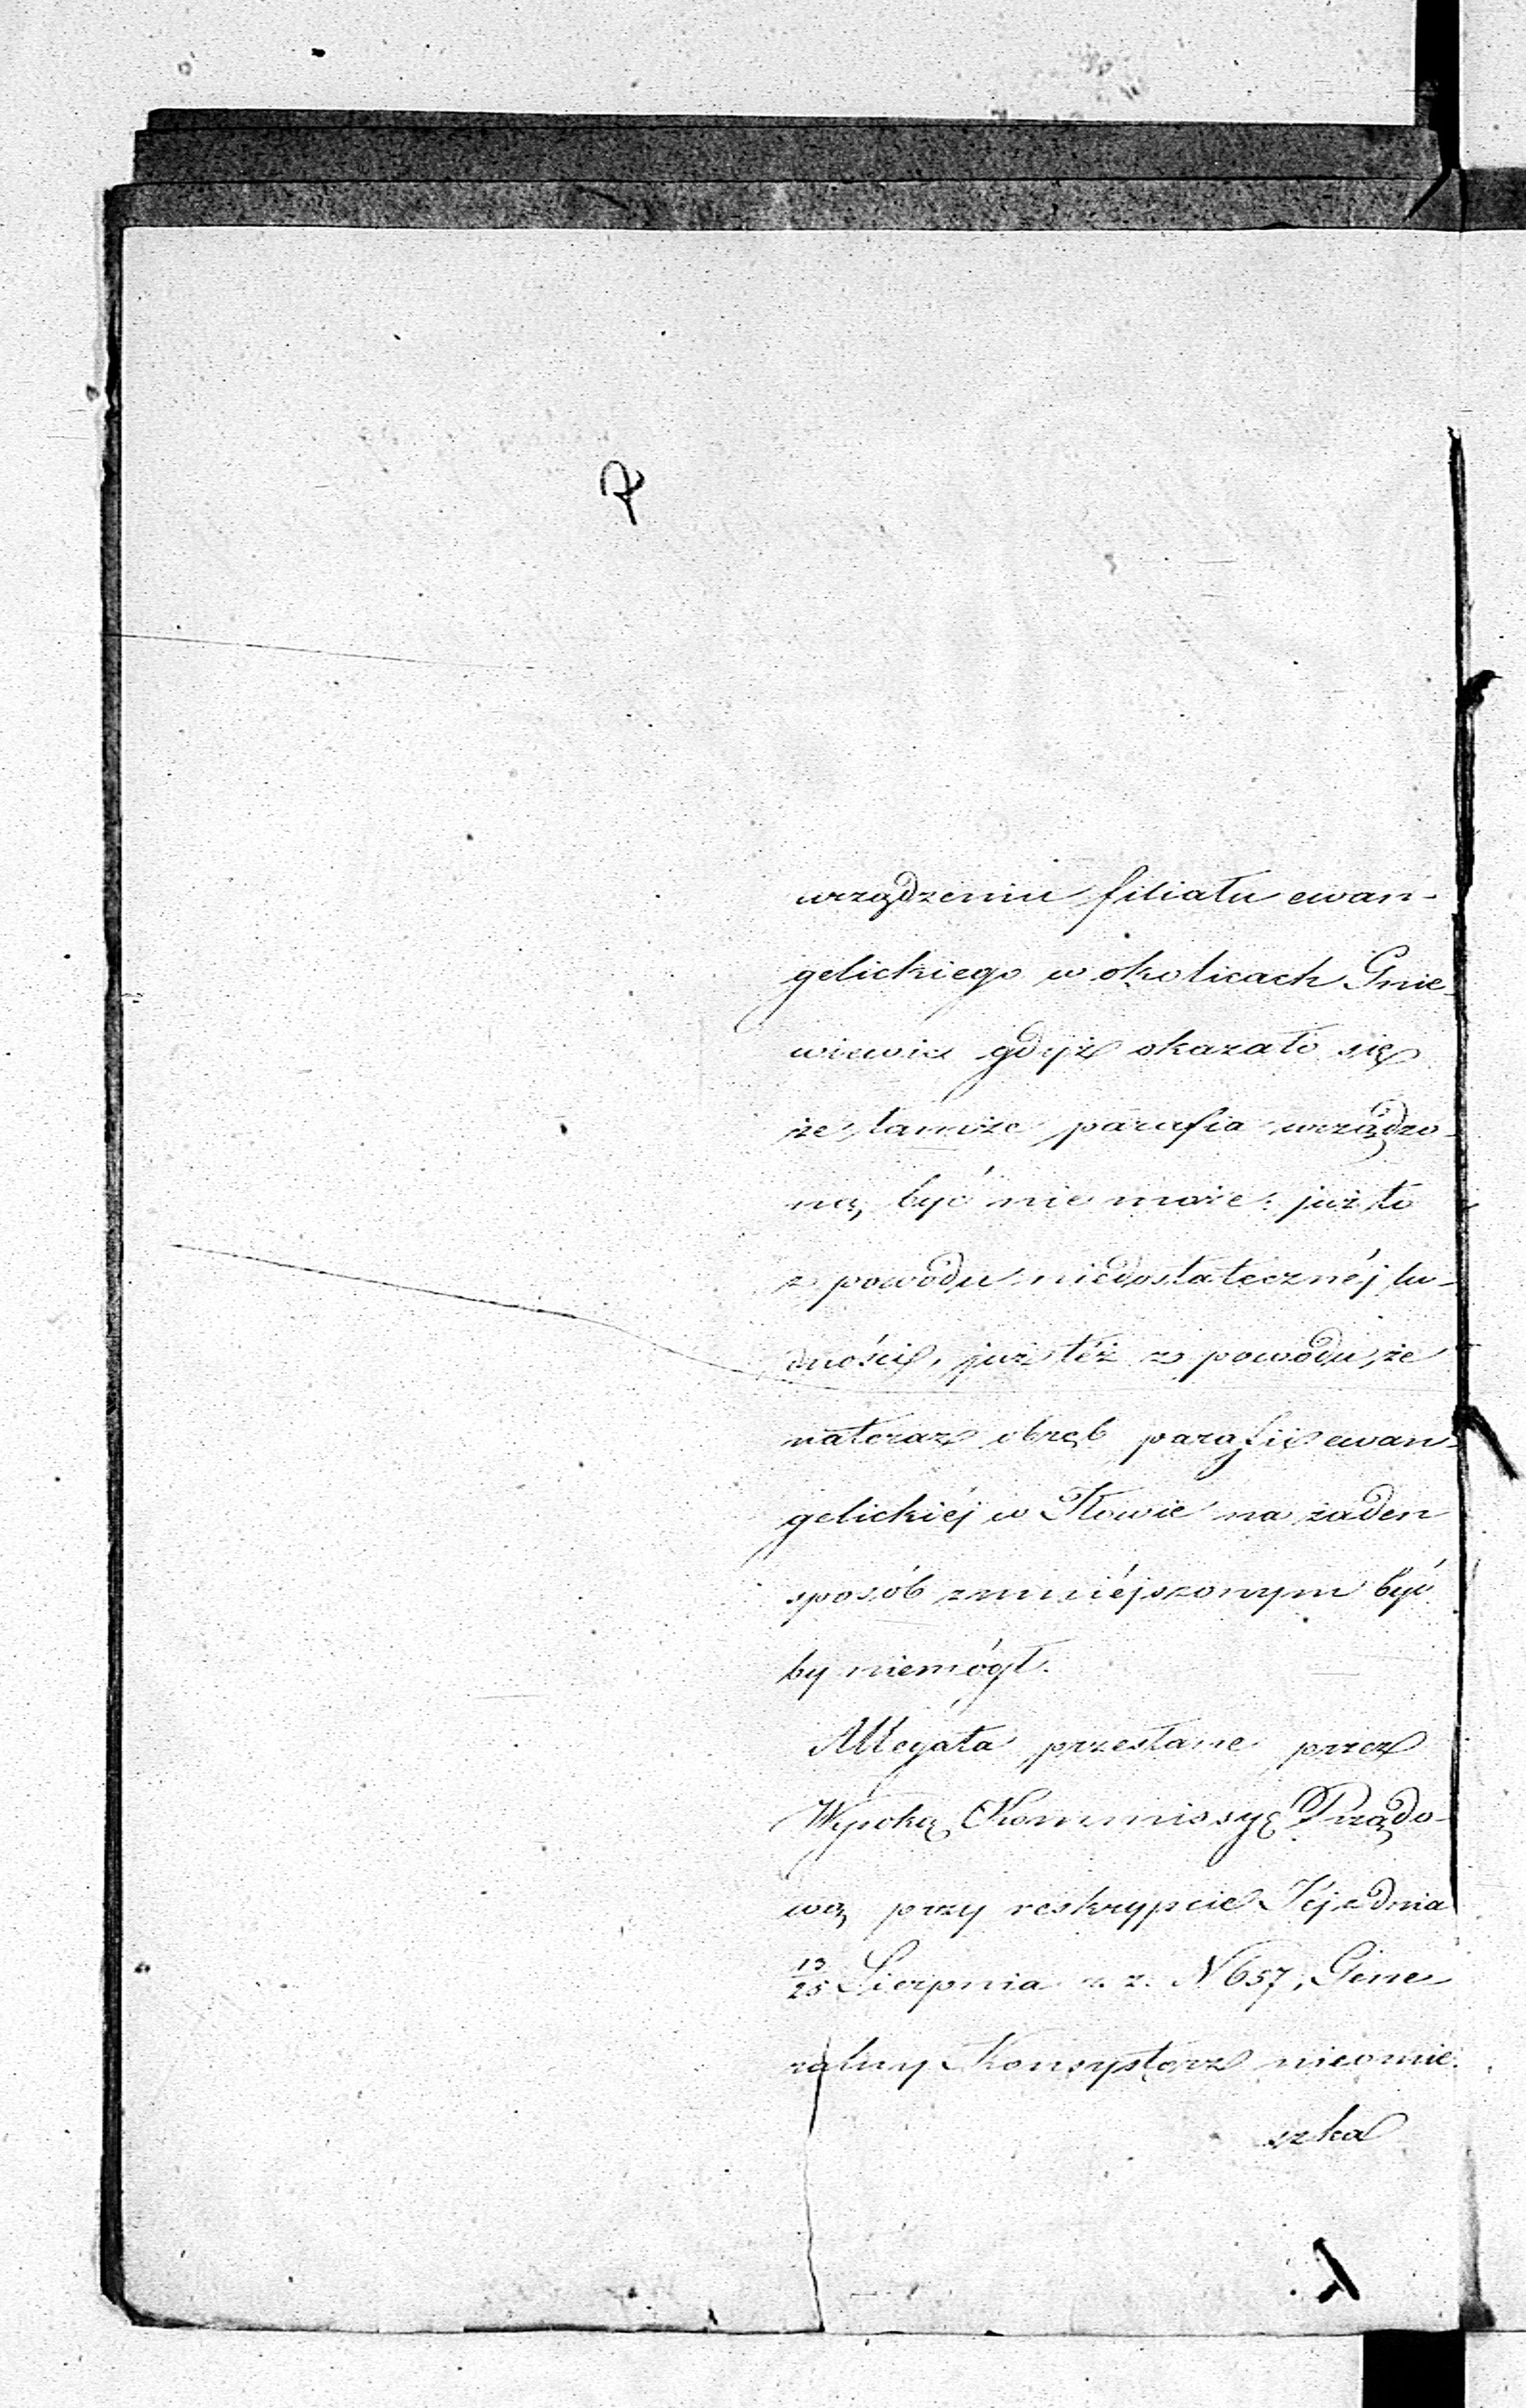 urządzeniu filiału ewan-
gelickiego w okolicach Gnie-
wiewic gdyż okazało się
że tamże parafia urządzo-
ną być nie może: już to
z powodu niedostatecznéj lu-
dności, już też z powodu, że
natenczas obręb parafii ewan-
gelickiéj w Iłowie na żaden
sposób zmniéjszonym być
by niemógł.
Allegata przesłane przez
Wysoką Kommissyę Rządo-
wą przy reskrypcie Jéj z dnia
13/25 Sierpnia r. z. N 657, Gene
ralny Konsystorz nieomie-
szka